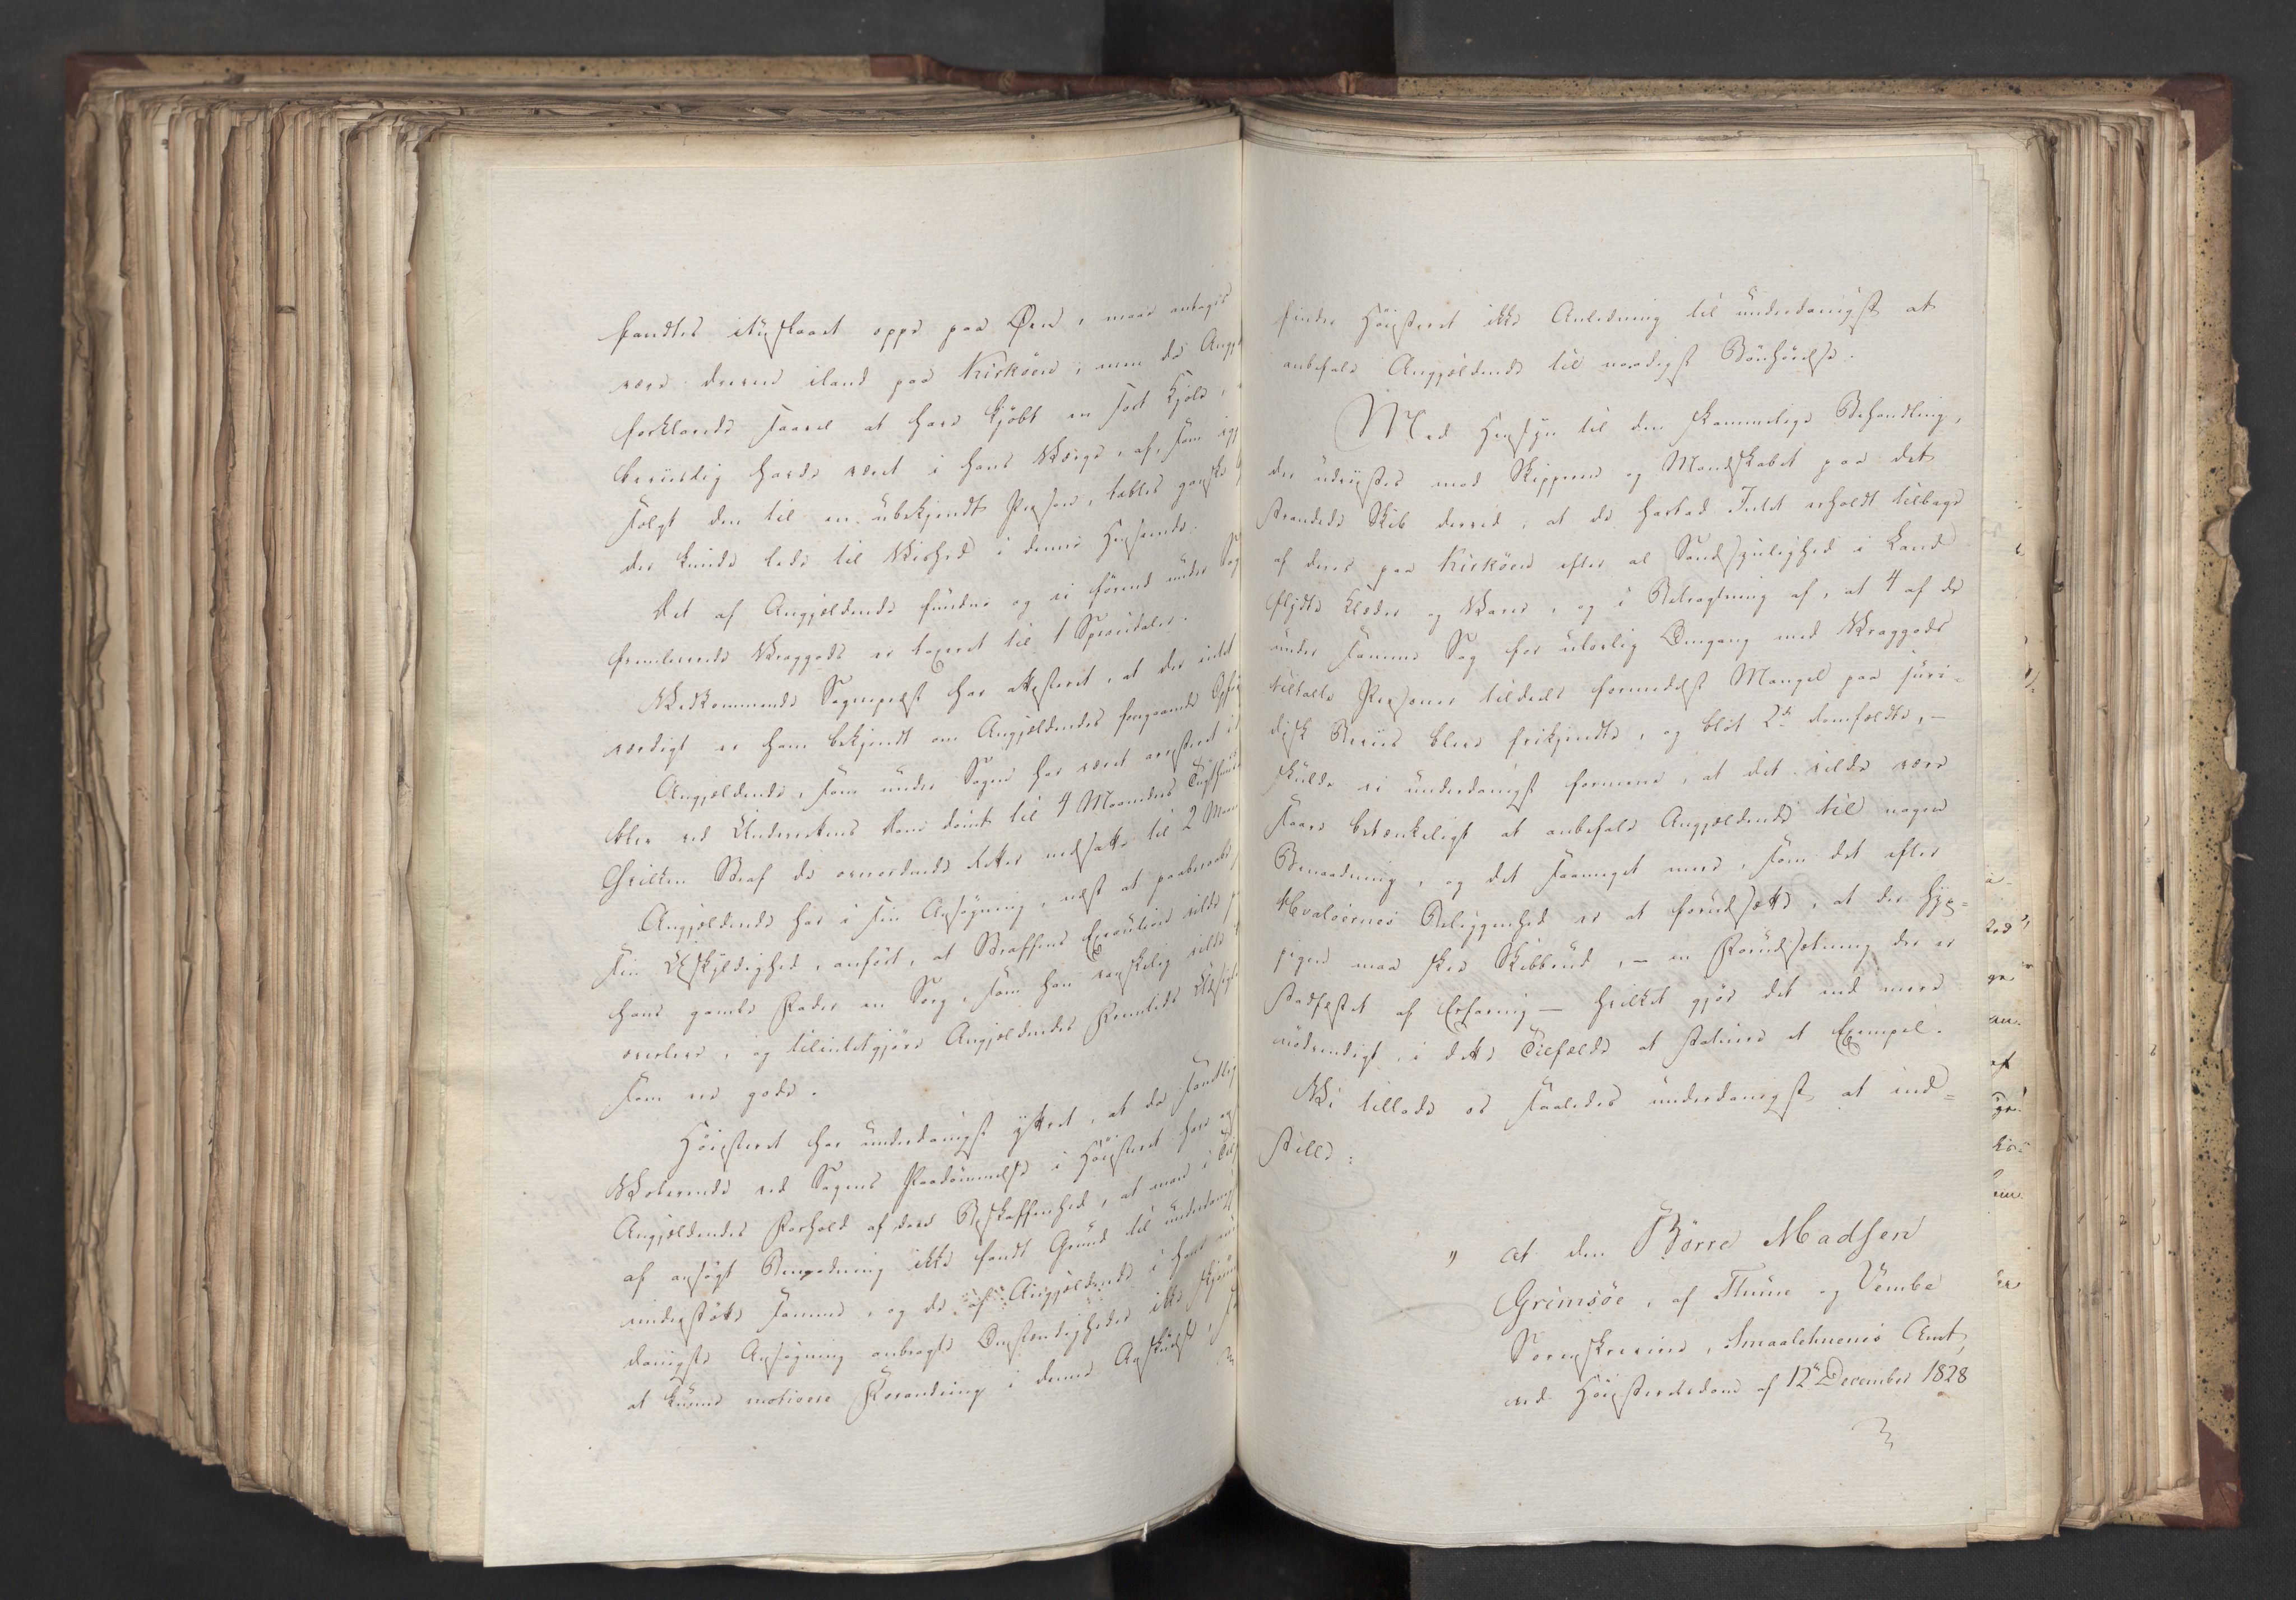 fandtes ituslaaet oppe paa Øen, maae antages
være dreven iland paa Kirköen; men da Angje
forklarede saavel at have kjöbt en sort Kjole,
beviislig havde været i hans Værge, af, som
solgt den til en ubekjendt Person, tabtes ganske
der kunde lede til Vished i denne Henseende.
Det af Angjeldende fundne og ei förend under Sag
fremleverede Vraggods er taxeret til 1 Speciedaler.
Vedkommende Sognepræst har attesteret, at der intet
værdigt er ham bekjendt om Angjeldendes foregaaende Opför
Angjeldende, som under Sagen har været arresteret
blev ved Underrettens Dom dömt til 4 Maaneders Tugthuus
hvilken Straf de overordnede Retter nedsatte til 2 Maa
Angjeldende har i sin Ansögning, næst at paaberaabe
sin Uskyldighed, anfört, at Straffens Execution vilde
hans gamle Fader en Sorg, som han vanskelig vilde
overleve, og tilintetgjöre Angjeldendes Fremtids Udsigter
som ere gode.
Höiesteret har underdanigst yttret, at da samtlig
Voterende ved Sagens Paadömmelse i Höiesteret have
Angjeldendes Forhold af den Beskaffenhed, at man i Til
af ansögt Benaadning ikke fandt Grund til underdanigst
understötte samme, og de af Angjeldende i hans un
danigste Ansögning anbragte Omstændigheder ikke skjönnes
at kunne motivere Forandring i denne Anskuelse, saa
finder Höiesteret ikke Anledning til underdanigst at
anbefale Angjeldende til naadigst Bönhörelse.
Med Hensyn til den skammelige Behandling,
der udvistes mod Skipperen og Mandskabet paa det
strandede Skib derved, at de hartad Intet erholdt tilbage
af deres paa Kirköen efter al Sandsynlighed i Land
flydte Klæder og Varer, og i Betragtning af, at 4 af de
under samme Sag for ulovlig Omgang med Vraggods
tiltalte Personer tildeels formedelst Mangel paa juri-
disk Beviis bleve frikjendte, og blot 2de domfældte, —
skulde vi underdanigst formene, at det vilde være
saare betænkeligt at anbefale Angjeldende til nogen
Benaadning, og det saameget mere, som det efter
Hvalöernes Beliggenhed er at forudsætte, at der hyp=
pigen maa skee Skibbrud, — en Forudsætning der er
stadfæstet af Erfaring — hvilket gjör det end mere
nödvendigt, i dette Tilfælde at statuere et Exempel.
Vi tillade os saaledes underdanigst at ind=
stille:
" at den Börre Madsen
Grimsöe, af Thune og Vembe
Sorenskriverie, Smaalehnenes Amt,
ved Höiesteretsdom af 12te December 1828